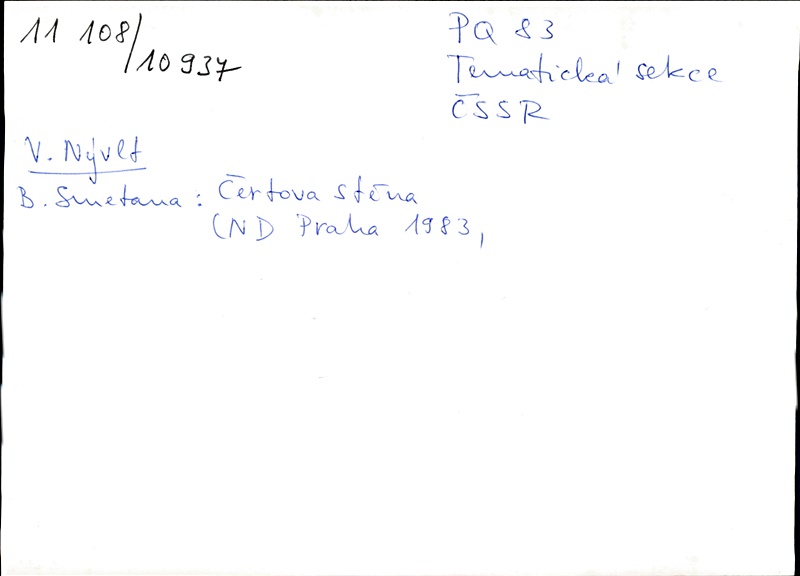 11 108/
/10937
PQ 83
Tematická sekce
ČSSR
V. Nývlt
B. Smetana: Čertova stěna
(ND Praha 1983,